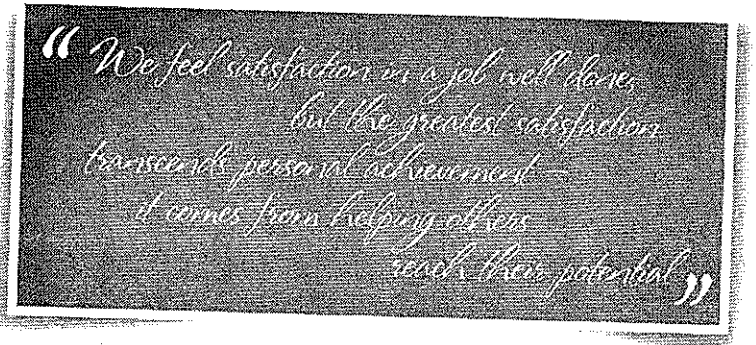 “ We feel satisfaction in a job well done,
but the greatest satisfaction
transcends personal achievement—
it comes from helping others
reach their potential ”